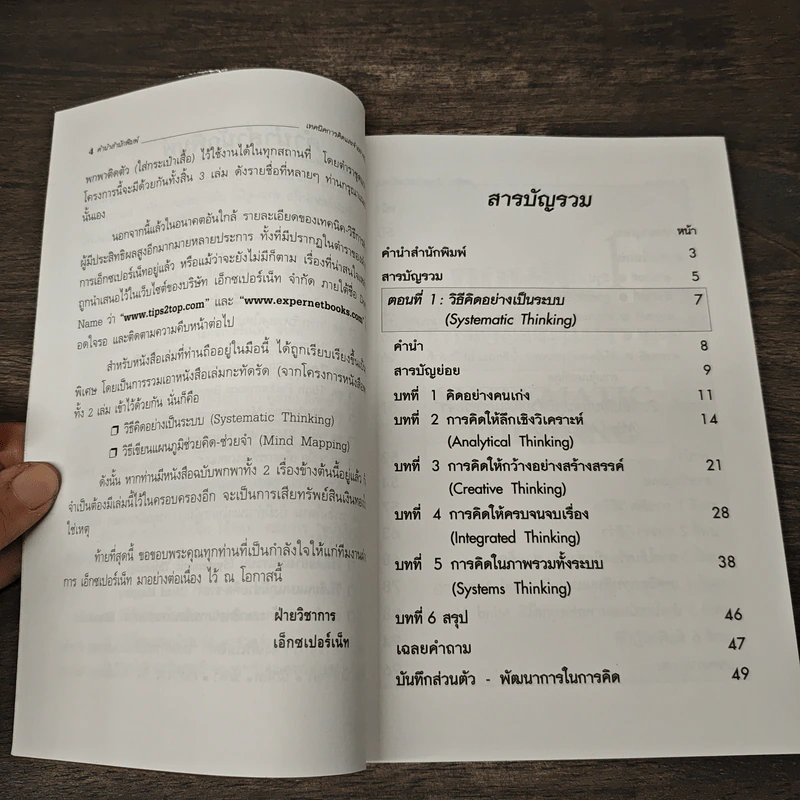 4 คำนำสำนักพิมพ์
เทคนิคการคิดและจำ
พกพาติดตัว (ใส่กระเป๋าเสื้อ) ไว้ใช้งานได้ในทุกสถานที่ โดยตำรา
โครงการนี้จะมีด้วยกันทั้งสิ้น 3 เล่ม ดังรายชื่อที่หลายๆ ท่านกรุณา
นั้นเอง
นอกจากนี้แล้วในอนาคตอันใกล้ รายละเอียดของเทคนิค-วิธีการ
ผู้มีประสิทธิผลสูงอีกมากมายหลายประการ ทั้งที่มีปรากฏในตำราของ
การเอ็กซเปอร์เน็ทอยู่แล้ว หรือแม้ว่าจะยังไม่มีก็ตาม เรื่องที่น่าสนใจ
ถูกนำเสนอไว้ในเว็บไซต์ของบริษัท เอ็กซเปอร์เน็ท จำกัด ภายใต้ชื่อ
Name ว่า "www.tips2top.com" และ "www.expernetbooks.com"
อดใจรอ และติดตามความคืบหน้าต่อไป
สำหรับหนังสือเล่มที่ท่านถืออยู่ในมือนี้ ได้ถูกเรียบเรียงขึ้น
พิเศษ โดยเป็นการรวมเอาหนังสือเล่มกะทัดรัด (จากโครงการหนังสือ
ทั้ง 2 เล่ม เข้าไว้ด้วยกัน นั่นก็คือ
❐ วิธีคิดอย่างเป็นระบบ (Systematic Thinking)
❐ วิธีเขียนแผนภูมิช่วยคิด-ช่วยจำ (Mind Mapping)
ดังนั้น หากท่านมีหนังสือฉบับพกพาทั้ง 2 เรื่องข้างต้นนี้อยู่แล้ว
จำเป็นต้องมีเล่มนี้ไว้ในครอบครองอีก จะเป็นการเสียทรัพย์สินเงินทอง
ใช่เหตุ
ท้ายที่สุดนี้ ขอขอบพระคุณทุกท่านที่เป็นกำลังใจให้แก่ทีมงาน
การ เอ็กซเปอร์เน็ท มาอย่างต่อเนื่อง ไว้ ณ โอกาสนี้
ฝ่ายวิชาการ
เอ็กซเปอร์เน็ท
สารบัญรวม
หน้า
คำนำสำนักพิมพ์ 3
สารบัญรวม 5
ตอนที่ 1 : วิธีคิดอย่างเป็นระบบ 7
(Systematic Thinking)
คำนำ 8
สารบัญย่อย 9
บทที่ 1 คิดอย่างคนเก่ง 11
บทที่ 2 การคิดให้ลึกเชิงวิเคราะห์ 14
(Analytical Thinking)
บทที่ 3 การคิดให้กว้างอย่างสร้างสรรค์ 21
(Creative Thinking)
บทที่ 4 การคิดให้ครบจนจบเรื่อง 28
(Integrated Thinking)
บทที่ 5 การคิดในภาพรวมทั้งระบบ 38
(Systems Thinking)
บทที่ 6 สรุป 46
เฉลยคำถาม 47
บันทึกส่วนตัว - พัฒนาการในการคิด 49